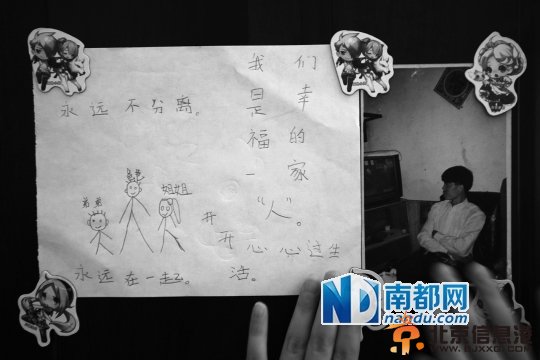 永远不分离。
我们
是幸
福的
一家
“人”。
开
开
心心这生
活。
弟弟
姐姐
永远在一起。
ND 南都网
nandu.com
北京信息港